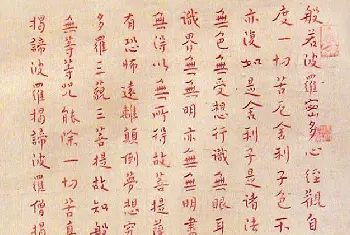 般若波羅密多心經觀自
度一切苦厄舍利子色不
亦復如是舍利子是諸法
無色無受想行識無眼耳
識界無無明亦無無明盡
無得以無所得故菩提薩
有恐怖遠離顛倒夢想究
多羅三藐三菩提故知般
無等等咒能除一切苦真
揭諦波羅揭諦波羅僧揭